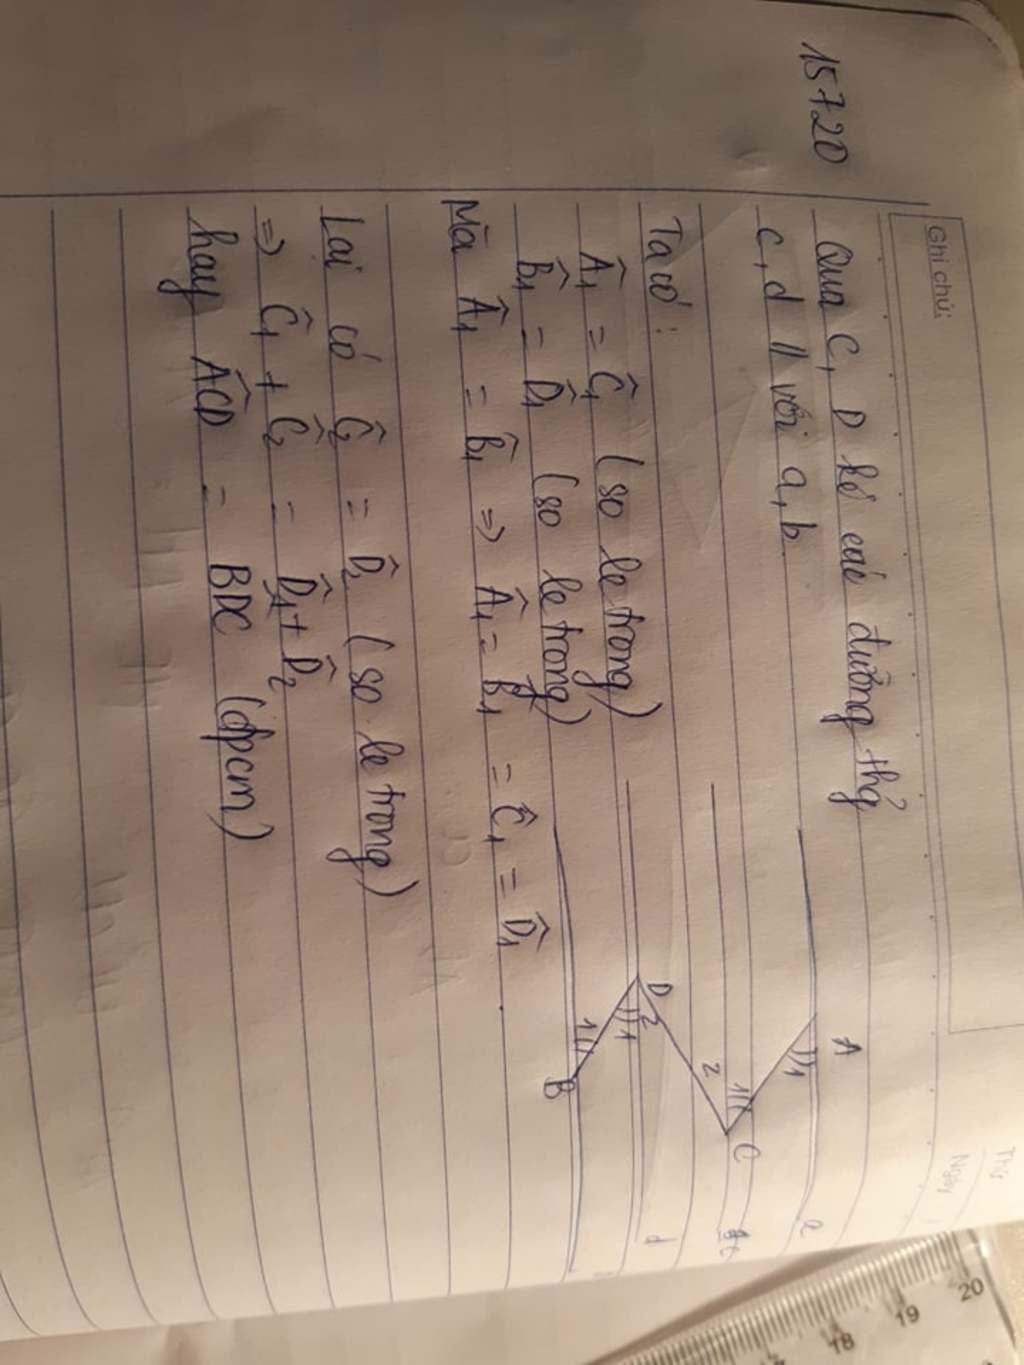 Ghi chú:
Thứ
Ngày
15720
Qua C, D kẻ các đường thẳ
c, d // với a, b
Ta có:
Â1 = Ĉ1 (so le trong)
B̂1 = D̂1 (so le trong)
Mà Â1 = B̂1 => Â1 = B̂1 = Ĉ1 = D̂1
Lại có Ĉ2 = D̂2 (so le trong)
=> Ĉ1 + Ĉ2 = D̂1 + D̂2
hay ACD = BDC (đpcm)
A
1
a
1
C
2
c
D
2
1
d
1
B
18 19 20